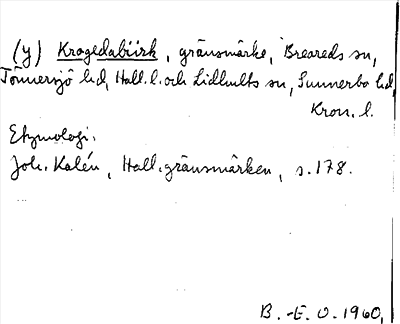 (y) Kragedabürk, gränsmärke, Breareds sn,
Tönnersjö hd, Hall. l. och Lidhults sn, Sunnerbo hd,
Kron. l.
Etymologi.
Joh. Kalén, Hall. gränsmärken, s. 178.
B. -E. O. 1960,